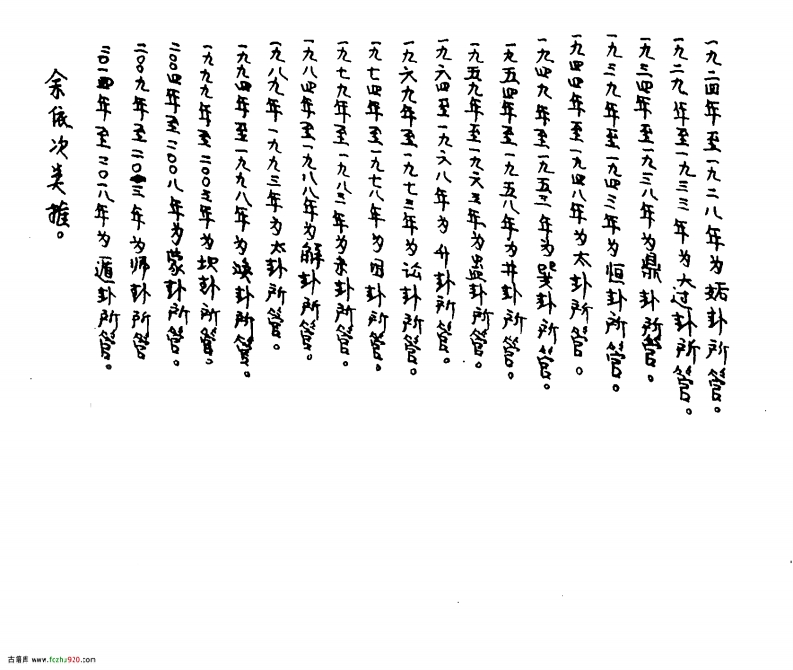 一九二四年至一九二八年为姤卦所管。
一九二九年至一九三三年为大过卦所管。
一九三四年至一九三八年为鼎卦所管。
一九三九年至一九四三年为恒卦所管。
一九四四年至一九四八年为太卦所管。
一九四九年至一九五三年为巽卦所管。
一九五四年至一九五八年为井卦所管。
一九五九年至一九六三年为蛊卦所管。
一九六四至一九六八年为升卦所管。
一九六九年至一九七三年为讼卦所管。
一九七四年至一九七八年为困卦所管。
一九七九年至一九八三年为未卦所管。
一九八四年至一九八八年为解卦所管。
一九八九年一九九三年为太卦所管。
一九九四年至一九九八年为涣卦所管。
一九九九年至二00三年为坎卦所管。
二00四年至二00八年为蒙卦所管。
二00九年至二0一三年为师卦所管
二0一四年至二0一八年为遁卦所管。
余依次类推。
www.fczhu920.com